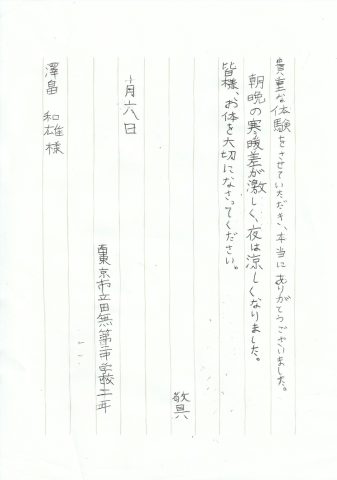 貴重な体験をさせていただき、本当にありがとうございました。
朝晩の寒暖差が激しく、夜は涼しくなりました。
皆様、お体を大切になさってください。
敬具
十月六日
西東京市立田無第二中学校二年
澤畠 和雄様